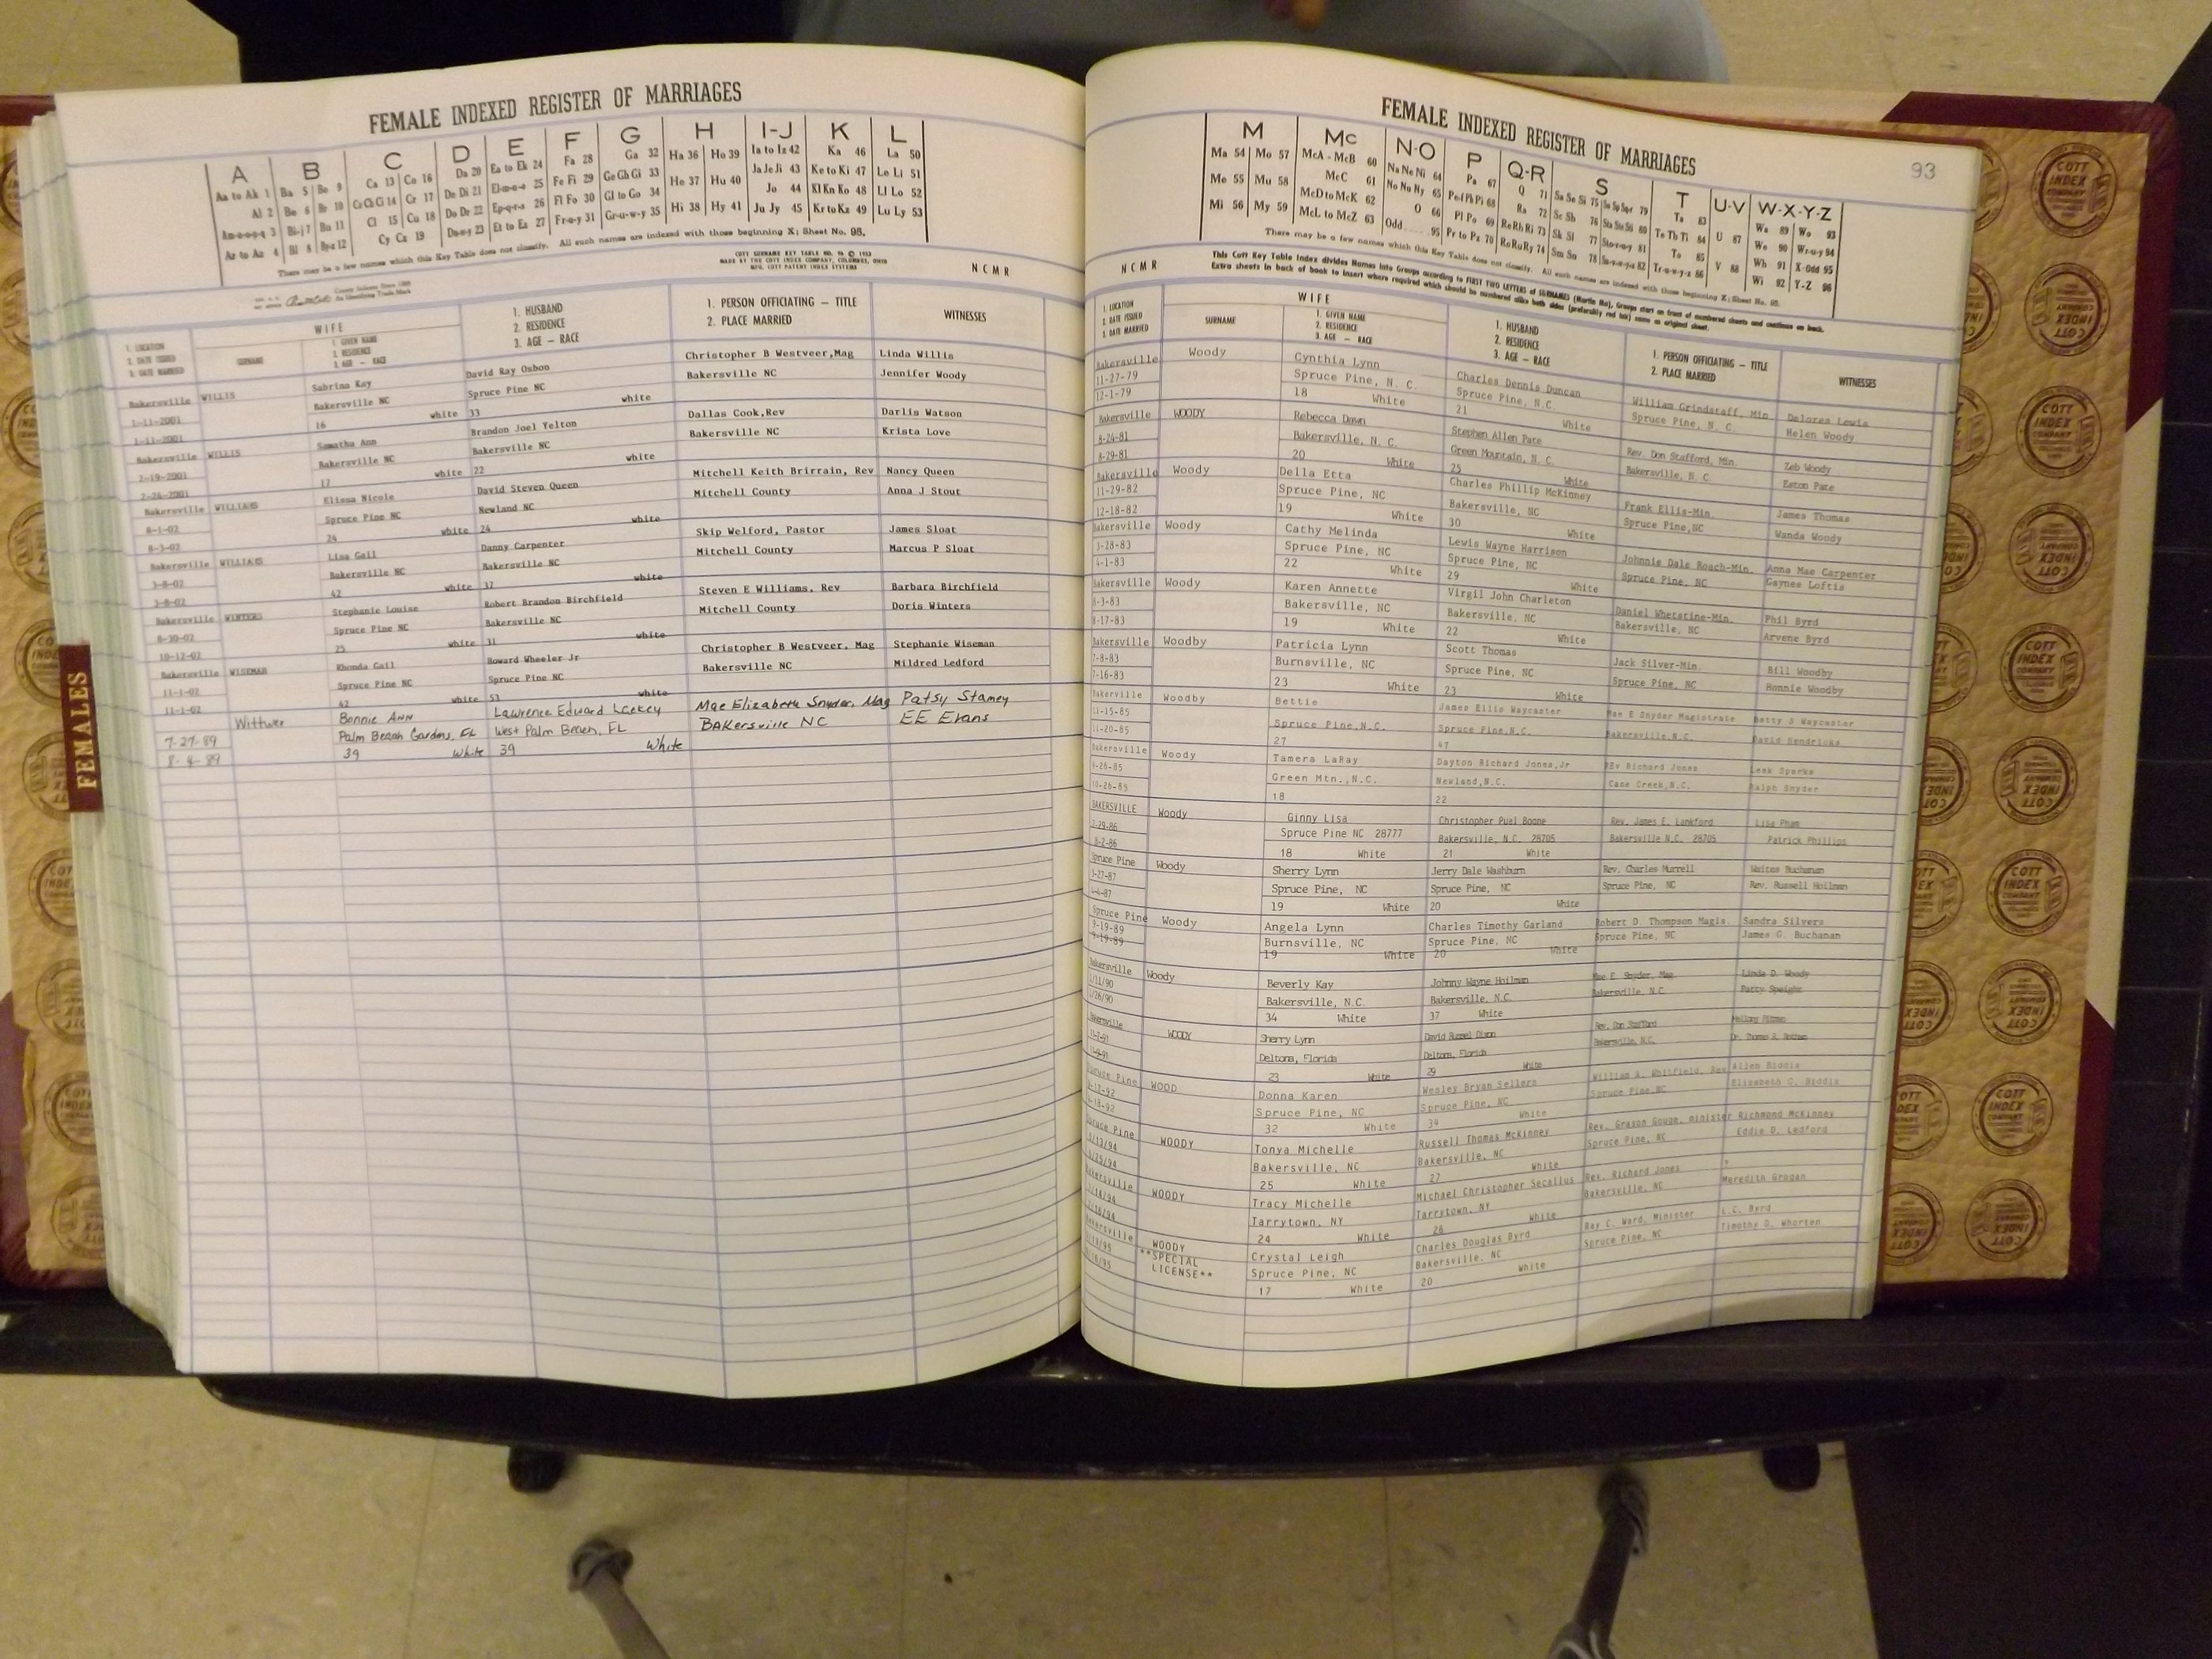 FEMALE INDEXED REGISTER OF MARRIAGES
A B C D E F G H I-J K L
Aa to Ak 1 Ba 5 Bo 9 Ca 13 Co 16 Da 20 Ea to Ek 24 Fa 28 Ga 32 Ha 36 Ho 39 Ia to Iz 42 Ka 46 La 50
Al 2 Be 6 Br 10 Ce Ch Ci 14 Cr 17 De Di 21 El-m-n-o 25 Fe Fi 29 Ge Gh Gi 33 He 37 Hu 40 Ja Je Ji 43 Ke to Ki 47 Le Li 51
Am-n-o-p-q 3 Bi-j 7 Bu 11 Cl 15 Cu 18 Do Dr 22 Ep-q-r-s 26 Fl Fo 30 Gl to Go 34 Hi 38 Hy 41 Jo 44 Kl Kn Ko 48 Ll Lo 52
Ar to Az 4 Bl 8 By-z 12 Cy Cz 19 Du-w-y 23 Et to Ez 27 Fr-u-y 31 Gr-u-w-y 35 Ju Jy 45 Kr to Kz 49 Lu Ly 53
There may be a few names which this Key Table does not classify. All such names are indexed with those beginning X; Sheet No. 95.
COTT SURNAME KEY TABLE NO. 96
MADE BY THE COTT INDEX COMPANY, COLUMBUS, OHIO
NCMR
1. LOCATION
2. DATE ISSUED
3. DATE MARRIED
WIFE
SURNAME
1. GIVEN NAME
2. RESIDENCE
3. AGE — RACE
1. HUSBAND
2. RESIDENCE
3. AGE — RACE
1. PERSON OFFICIATING — TITLE
2. PLACE MARRIED
WITNESSES
Bakersville WILLIS Sabrina Kay David Ray Osbon Christopher B Westveer,Mag Linda Willis
1-11-2001 Bakersville NC Spruce Pine NC Bakersville NC Jennifer Woody
1-11-2001 16 white 33 white
Bakersville WILLIS Samatha Ann Brandon Joel Yelton Dallas Cook,Rev Darlis Watson
2-19-2001 Bakersville NC Bakersville NC Bakersville NC Krista Love
2-24-2001 17 white 22 white
Bakersville WILLIAMS Elissa Nicole David Steven Queen Mitchell Keith Brirrain, Rev Nancy Queen
8-1-02 Spruce Pine NC Newland NC Mitchell County Anna J Stout
8-3-02 24 white 24 white
Bakersville WILLIAMS Lisa Gail Danny Carpenter Skip Welford, Pastor James Sloat
3-8-02 Bakersville NC Bakersville NC Mitchell County Marcus P Sloat
3-8-02 42 white 37 white
Bakersville WINTERS Stephanie Louise Robert Brandon Birchfield Steven E Williams, Rev Barbara Birchfield
8-30-02 Spruce Pine NC Bakersville NC Mitchell County Doris Winters
10-12-02 25 white 31 white
Bakersville WISEMAN Rhonda Gail Howard Wheeler Jr Christopher B Westveer, Mag Stephanie Wiseman
11-1-02 Spruce Pine NC Spruce Pine NC Bakersville NC Mildred Ledford
11-1-02 42 white 53 white
Wittwer Bonnie Ann Lawrence Edward Lackey Mae Elizabeth Snyder, Mag Patsy Stamey
7-27-89 Palm Beach Gardens, FL West Palm Beach, FL Bakersville NC EE Evans
8-4-89 39 White 39 White
FEMALES
FEMALE INDEXED REGISTER OF MARRIAGES
93
M Mc N-O P Q-R S T U-V W-X-Y-Z
Ma 54 Mo 57 McA - McB 60 Na Ne Ni 64 Pa 67 Q 71 Sa Se Si 75 So Sp Sq-r 79 Ta 83 U 87 Wa 89 Wo 93
Me 55 Mu 58 McC 61 No Nu Ny 65 Pe-f Ph Pi 68 Ra 72 Sc Sh 76 Sta Ste Sti 80 Te Th Ti 84 V 88 We 90 Wr-u-y 94
Mi 56 My 59 McD to McK 62 O 66 Pl Po 69 Re Rh Ri 73 Sk Sl 77 Sto-r-u-y 81 To 85 Wh 91 X-Odd 95
McL to McZ 63 Odd 95 Pr to Pz 70 Ro Ru Ry 74 Sm Sn 78 Su-v-w-y-z 82 Tr-u-w-y-z 86 Wi 92 Y-Z 96
There may be a few names which this Key Table does not classify. All such names are indexed with those beginning X; Sheet No. 95.
This Cott Key Table Index divides Names into Groups according to FIRST TWO LETTERS of SURNAMES (Martin Ma), Groups start on front of numbered sheets and continue on back.
Extra sheets in back of book to insert where required which should be numbered alike both sides (preferably red ink) same as original sheet.
NCMR
1. LOCATION
2. DATE ISSUED
3. DATE MARRIED
WIFE
SURNAME
1. GIVEN NAME
2. RESIDENCE
3. AGE — RACE
1. HUSBAND
2. RESIDENCE
3. AGE — RACE
1. PERSON OFFICIATING — TITLE
2. PLACE MARRIED
WITNESSES
Bakersville Woody Cynthia Lynn Charles Dennis Duncan William Grindstaff, Min Delores Lewis
11-27-79 Spruce Pine, N. C. Spruce Pine, N.C. Spruce Pine, N. C. Helen Woody
12-1-79 18 White 21 White
Bakersville WOODY Rebecca Dawn Stephen Allen Pate Rev. Don Stafford, Min. Zeb Woody
8-24-81 Bakersville, N. C. Green Mountain, N. C. Bakersville, N. C. Eston Pate
8-29-81 20 White 25 White
Bakersville Woody Della Etta Charles Phillip McKinney Frank Ellis-Min. James Thomas
11-29-82 Spruce Pine, NC Bakersville, NC Spruce Pine,NC Wanda Woody
12-18-82 19 White 30 White
Bakersville Woody Cathy Melinda Lewis Wayne Harrison Johnnie Dale Roach-Min. Anna Mae Carpenter
3-28-83 Spruce Pine, NC Spruce Pine, NC Spruce Pine, NC Gaynee Loftis
4-1-83 22 White 29 White
Bakersville Woody Karen Annette Virgil John Charleton Daniel Whetstine-Min. Phil Byrd
8-3-83 Bakersville, NC Bakersville, NC Bakersville, NC Arvene Byrd
8-17-83 19 White 22 White
Bakersville Woodby Patricia Lynn Scott Thomas Jack Silver-Min. Bill Woodby
7-8-83 Burnsville, NC Spruce Pine, NC Spruce Pine, NC Honnie Woodby
7-16-83 23 White 23 White
Bakerville Woodby Bettie James Ellis Waycaster Mae E Snyder Magistrate Betty S Waycaster
11-15-85 Spruce Pine,N.C. Spruce Pine,N.C. Bakersville,N.C. David Hendricks
11-20-85 27 47
Bakersville Woody Tamera LaRay Dayton Richard Jones,Jr REv Richard Jones Leek Sparks
9-26-85 Green Mtn.,N.C. Newland,N.C. Cane Creek,N.C. Ralph Snyder
10-26-85 18 22
BAKERSVILLE Woody Ginny Lisa Christopher Pual Boone Rev. James E. Lankford Lisa Pham
7-29-86 Spruce Pine NC 28777 Bakersville, N.C. 28705 Bakersville N.C. 28705 Patrick Phillips
8-2-86 18 White 21 White
Spruce Pine Woody Sherry Lynn Jerry Dale Washburn Rev. Charles Murrell Waites Buchanan
3-27-87 Spruce Pine, NC Spruce Pine, NC Spruce Pine, NC Rev. Russell Hoilman
4-4-87 19 White 20 White
Spruce Pine Woody Angela Lynn Charles Timothy Garland Robert D. Thompson Magis. Sandra Silvers
9-19-89 Burnsville, NC Spruce Pine, NC Spruce Pine, NC James G. Buchanan
9-19-89 19 White 20 White
Bakersville Woody Beverly Kay Johnny Wayne Hoilman Mae E. Snyder, Mag. Linda D. Woody
1/11/90 Bakersville, N.C. Bakersville, N.C. Bakersville, N.C. Patty Speight
1/26/90 34 White 37 White
Bakersville WOODY Sherry Lynn David Russel Dixon Rev. Don Stafford
Deltona, Florida Deltona, Florida Bakersville, N.C.
23 White 29 White
Spruce Pine WOOD Donna Karen Wesley Bryan Sellers William A. Whitfield, Rev Allen Biddix
Spruce Pine, NC Spruce Pine, NC Spruce Pine,NC Elizabeth C. Biddix
32 White 34 White
Spruce Pine WOODY Tonya Michelle Russell Thomas McKinney Rev. Graxon Gouge, minister Richmond McKinney
Bakersville, NC Bakersville, NC Spruce Pine, NC Eddie D. Ledford
25 White 27 White
Bakersville WOODY Tracy Michelle Michael Christopher Secallus Rev. Richard Jones
Tarrytown, NY Tarrytown, NY Bakersville, NC Meredith Grogan
24 White 26 White
Bakersville WOODY Crystal Leigh Charles Douglas Byrd Ray C. Ward, Minister L.C. Byrd
**SPECIAL Spruce Pine, NC Bakersville, NC Spruce Pine, NC Timothy D. Whorten
LICENSE** 17 White 20 White
COTT
INDEX
COMPANY